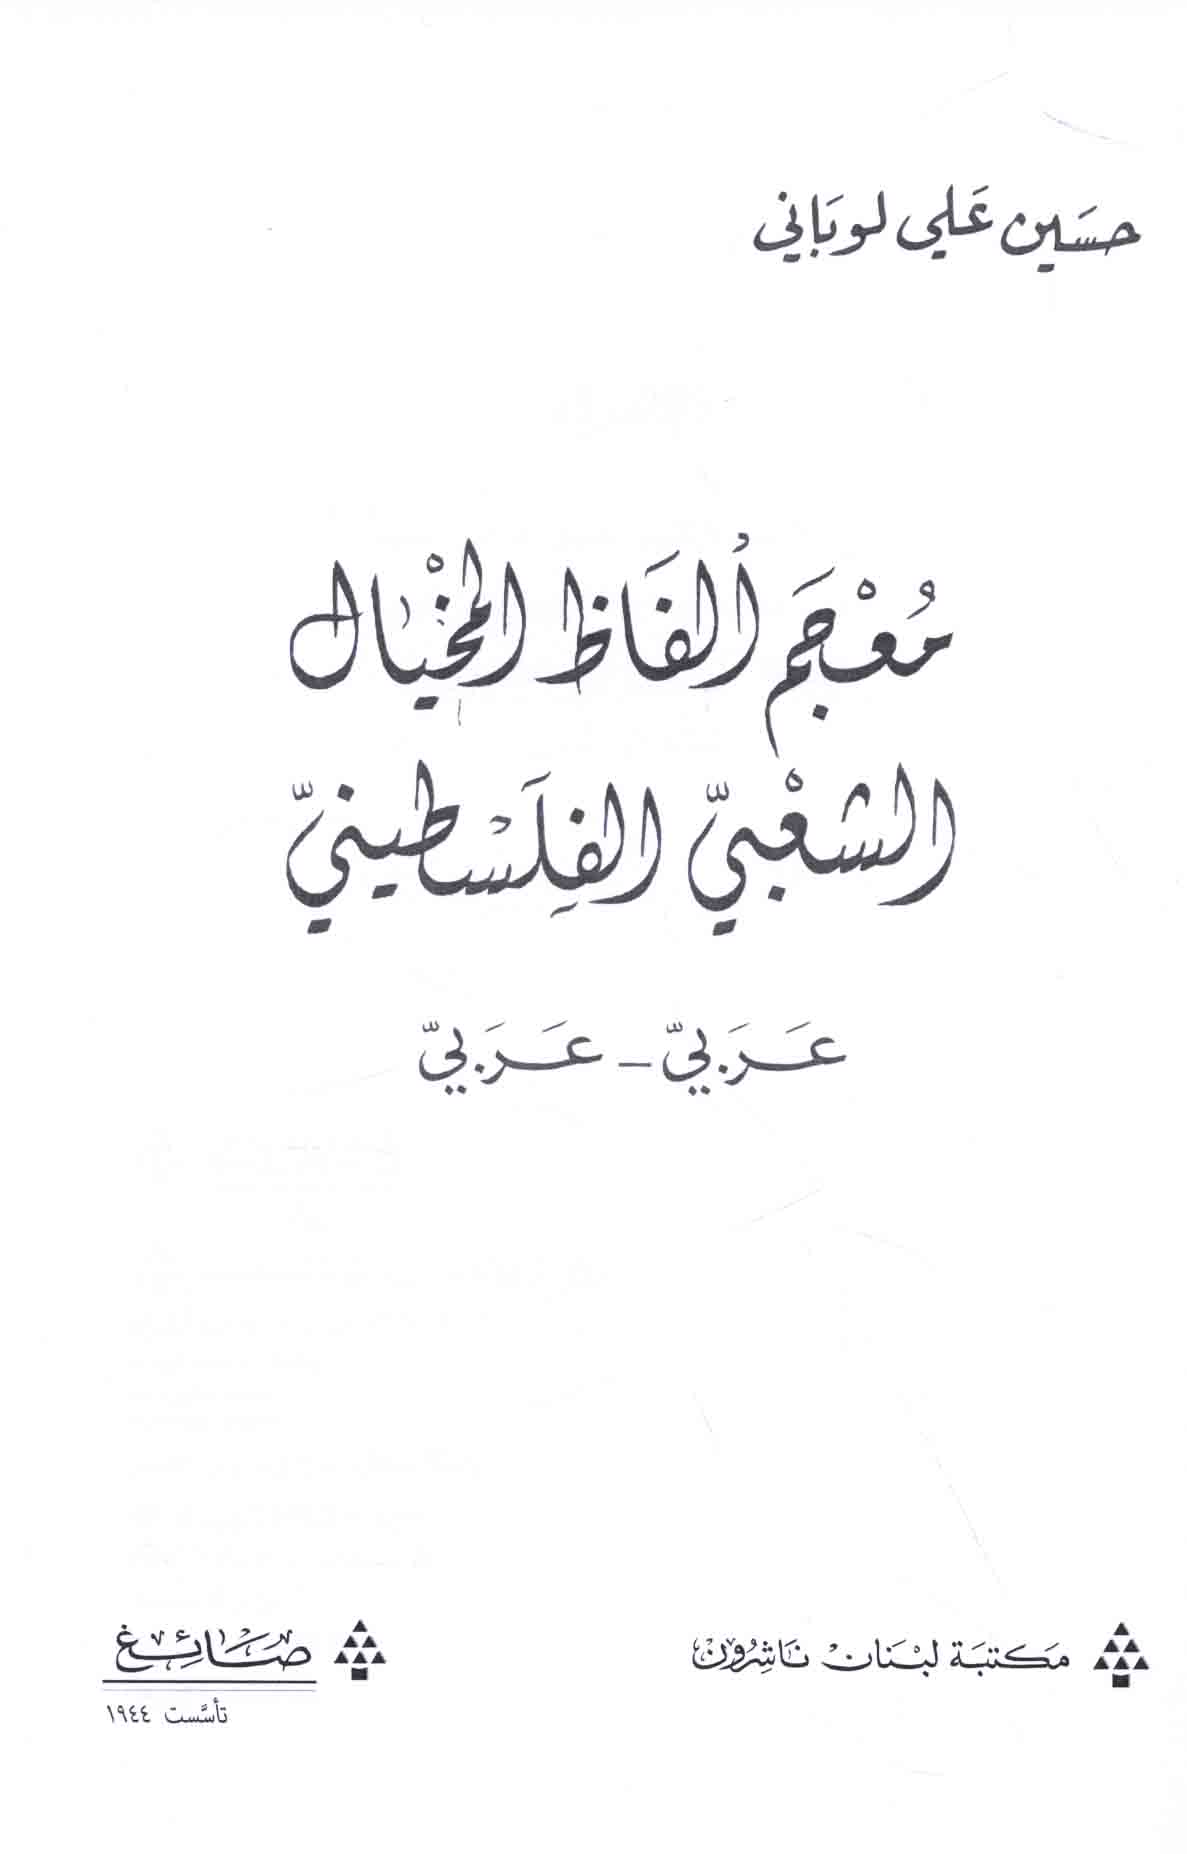 حسَين عَلي لوبَاني
مُعْجَم ألفَاظ الخْيال
الشعْبيّ الفِلَسْطينيّ
عَرَبيّ - عَرَبيّ
مَكتبَة لبْنان ناشِرُون
صَائِغ
تأسَّست ١٩٤٤